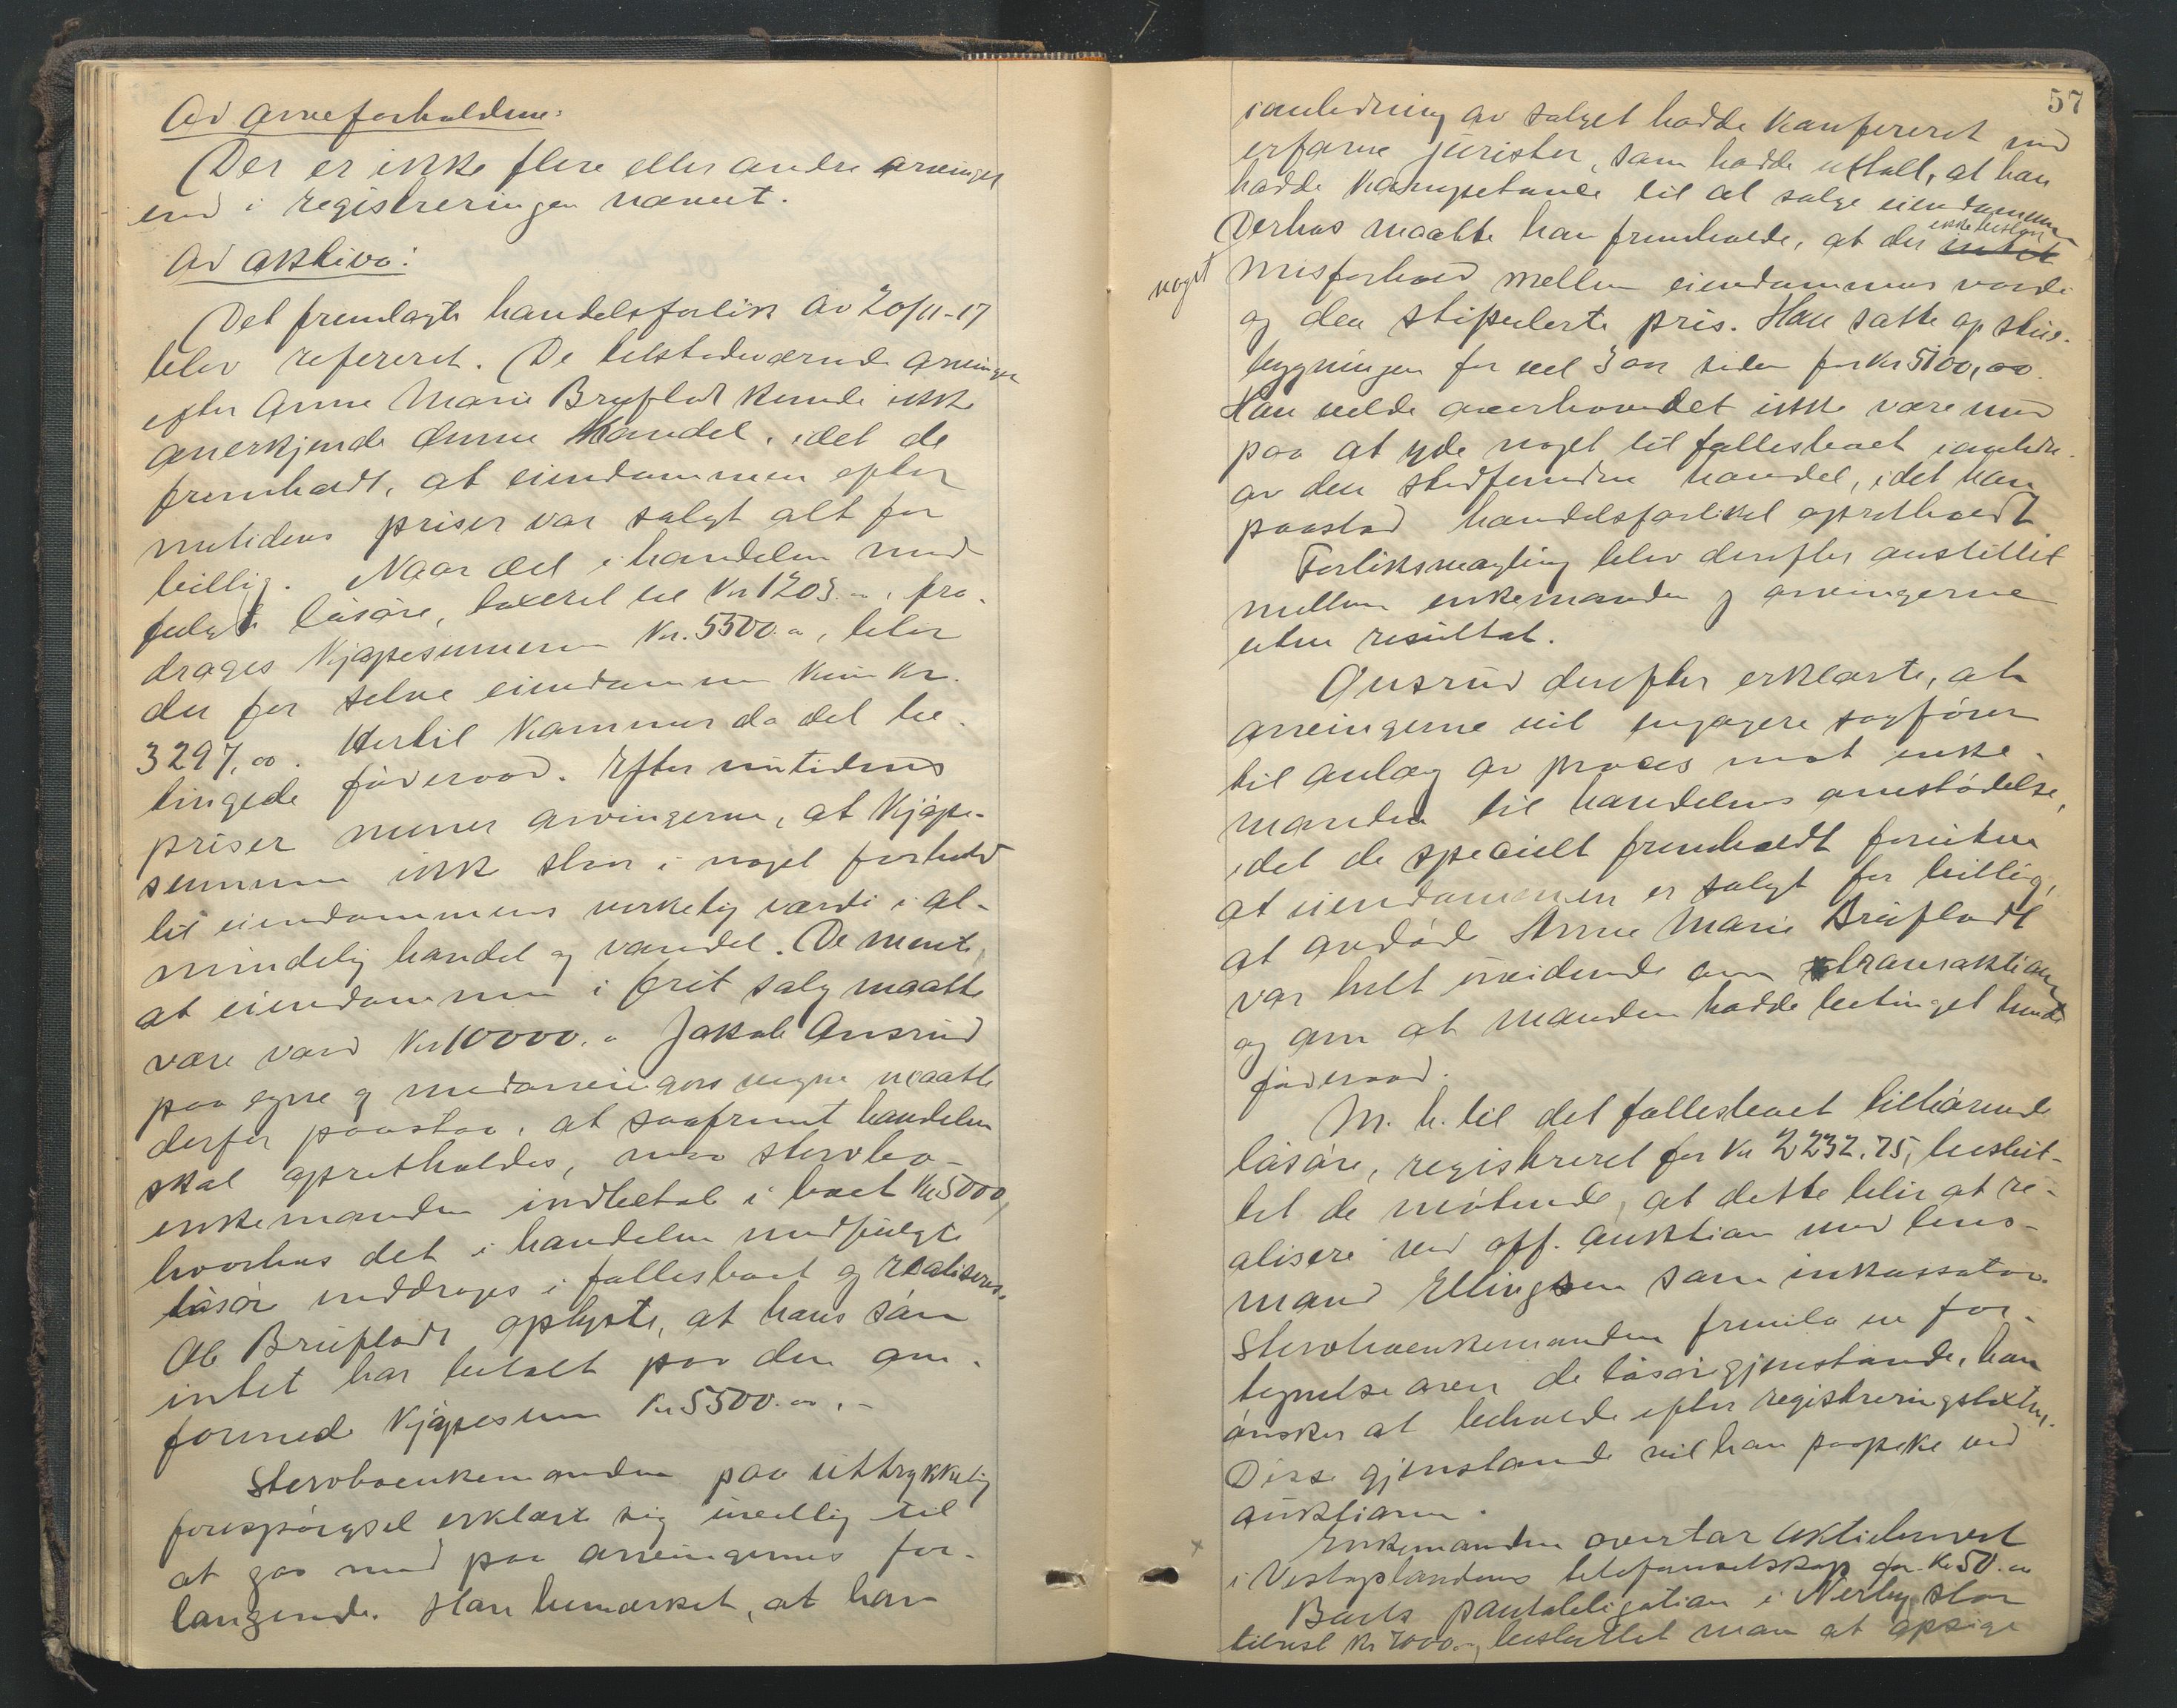 Ad arveforholdene:
Der er ikke flere eller andre arvinger
end i registreringen nævnt.
Ad aktiva:
Det fremlagte handelsforlik av 20/11-17
blev refereret. De tilstedeværende arvinger
efter Anne Marie Bruflat kunde ikke
anerkjende denne handel, idet de
fremholdt, at eiendommen efter
nutidens priser var solgt alt for
billig. Naar det i handelen med-
fulgte løsøre, taxeret til Kr 1203.-, fra-
drages kjøpesummen Kr. 5500.-, blir
der for selve eiendommen kun kr.
3297,00. Hertil kommer da det be-
tingede føderaad. Efter nutidens
priser mener arvingerne, at kjøpe-
summen ikke staar i noget forhold
til eiendommens virkelig værdi i al-
mindelig handel og vandel. De mente,
at eiendommen i frit salg maatte
være værd Kr 10000.- Jakob Ansrud
paa egne og medarvingers vegne maatte
derfor paastaa, at saafremt handelen
skal opretholdes, maa stervbo-
enkemanden indbetale i boet Kr 5000,
hvorhos det i handelen medfulgte
løsøre inddrages i fællesboet og realiseres.
Ole Brufladt oplyste, at hans søn
intet har betalt paa den om-
formede kjøpesum Kr 5500.00.-
Stervboenkemanden paa uttrykkelig
forespørgsel erklærte sig uvillig til
at gaa med paa arvingernes for-
langende. Han bemærket, at han
57
i anledning av salget hadde konfereret med
erfarne jurister, som hadde uttalt, at han
hadde kompetance til at sælge eiendommen
Derhos maatte han fremholde, at der ikke bestaar
noget misforhold mellem eiendommens værdi
og den stipulerte pris. Han satte op stue-
bygningen for vel 3 aar siden for Kr 5100,00.
Han vilde overhovedet ikke være med
paa at yde noget til fællesboet i anledn.
av den stedfundne handel, idet han
paastod handelsforliket opretholdt.
Forliksmægling blev derefter anstillet
mellem enkemanden og arvingerne
uten resultat.
Ansrud derefter erklærte, at
arvingerne vil engagere sagfører
til anlæg av proces mot enke-
manden til handelens omstødelse,
idet de specielt fremholdt foruten
at eiendommen er solgt for billig,
at avdøde Anne Marie Brufladt
var helt uvidende om transaktionen
og om at manden hadde betinget hende
føderaad.
M. h. til det fællesboet tilhørende
løsøre, registreret for Kr 2232.75, beslut-
tet de møtende, at dette blir at re-
alisere ved off. auktion med lens-
mand Ellingsen som inkassator.
Stervboenkemanden fremla en for-
tegnelse over de løsøregjenstande, han
ønsker at beholde efter registreringstaxten.
Disse gjenstande vil han paapeke ved
auktionen.
x Enkemanden overtar aktiebrevet
i Vestoplandenes telefonselskap for Kr 50.00
Boets pantobligation i Nerby stor
tilrest Kr 7000.-, besluttet man at opsige